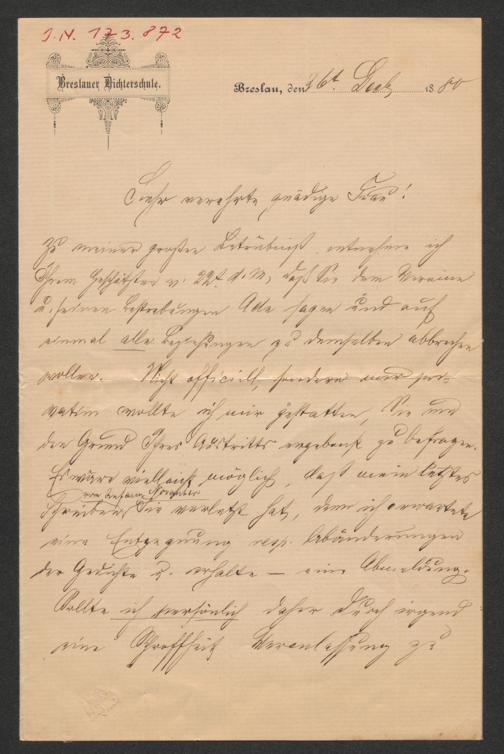 J.N. 173.872
Breslauer Dichterschule.
Breslau, den 26t. Decb. 1880
Sehr verehrte gnädige Frau!
Zu meiner großen Betrübniß entnehme ich
Ihrem Geschätzten v. 22t. d. M., daß Sie dem Vereine
u. seinen Bestrebungen Ade sagen und auf
einmal alle Beziehungen zu demselben abbrechen
wollen. Nicht officiell, sondern nur pri-
vatim wollte ich mir gestatten, Sie um
den Grund Ihres Austritts ergebenst zu befragen.
Es wäre vielleicht möglich, daß mein letztes
von Anfang November
Schreiben Sie verletzt hat, denn ich erwartete
eine Entgegnung resp. Abänderungen
der Gedichte u. erhalte — eine Abmeldung.
Sollte ich persönlich daher durch irgend
eine Schroffheit Veranlassung zu